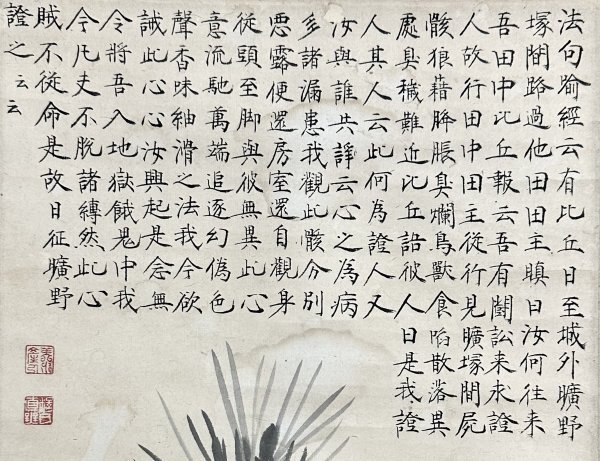 法句喻經云有比丘日至城外曠野
塚間路過他田田主瞋曰汝何往来
吾田中比丘報云吾有鬪訟来求證
人故行田中田主從行見曠塚間屍
骸狼藉膖脹臭爛鳥獸食啗散落異
處臭穢難近比丘語彼人曰是我證
人其人云此何為證人又
汝與誰共諍云心之為病
多諸漏患我觀此骸分別
悪露便還房室還自觀身
從頭至脚與彼無異此心
意流馳萬端追逐幻偽色
聲香味細滑之法我今欲
誡此心心汝興起是念無
令將吾入地獄餓鬼中我
今凡夫不脫諸縛然此心
賊不從命是故日征曠野
證之云云